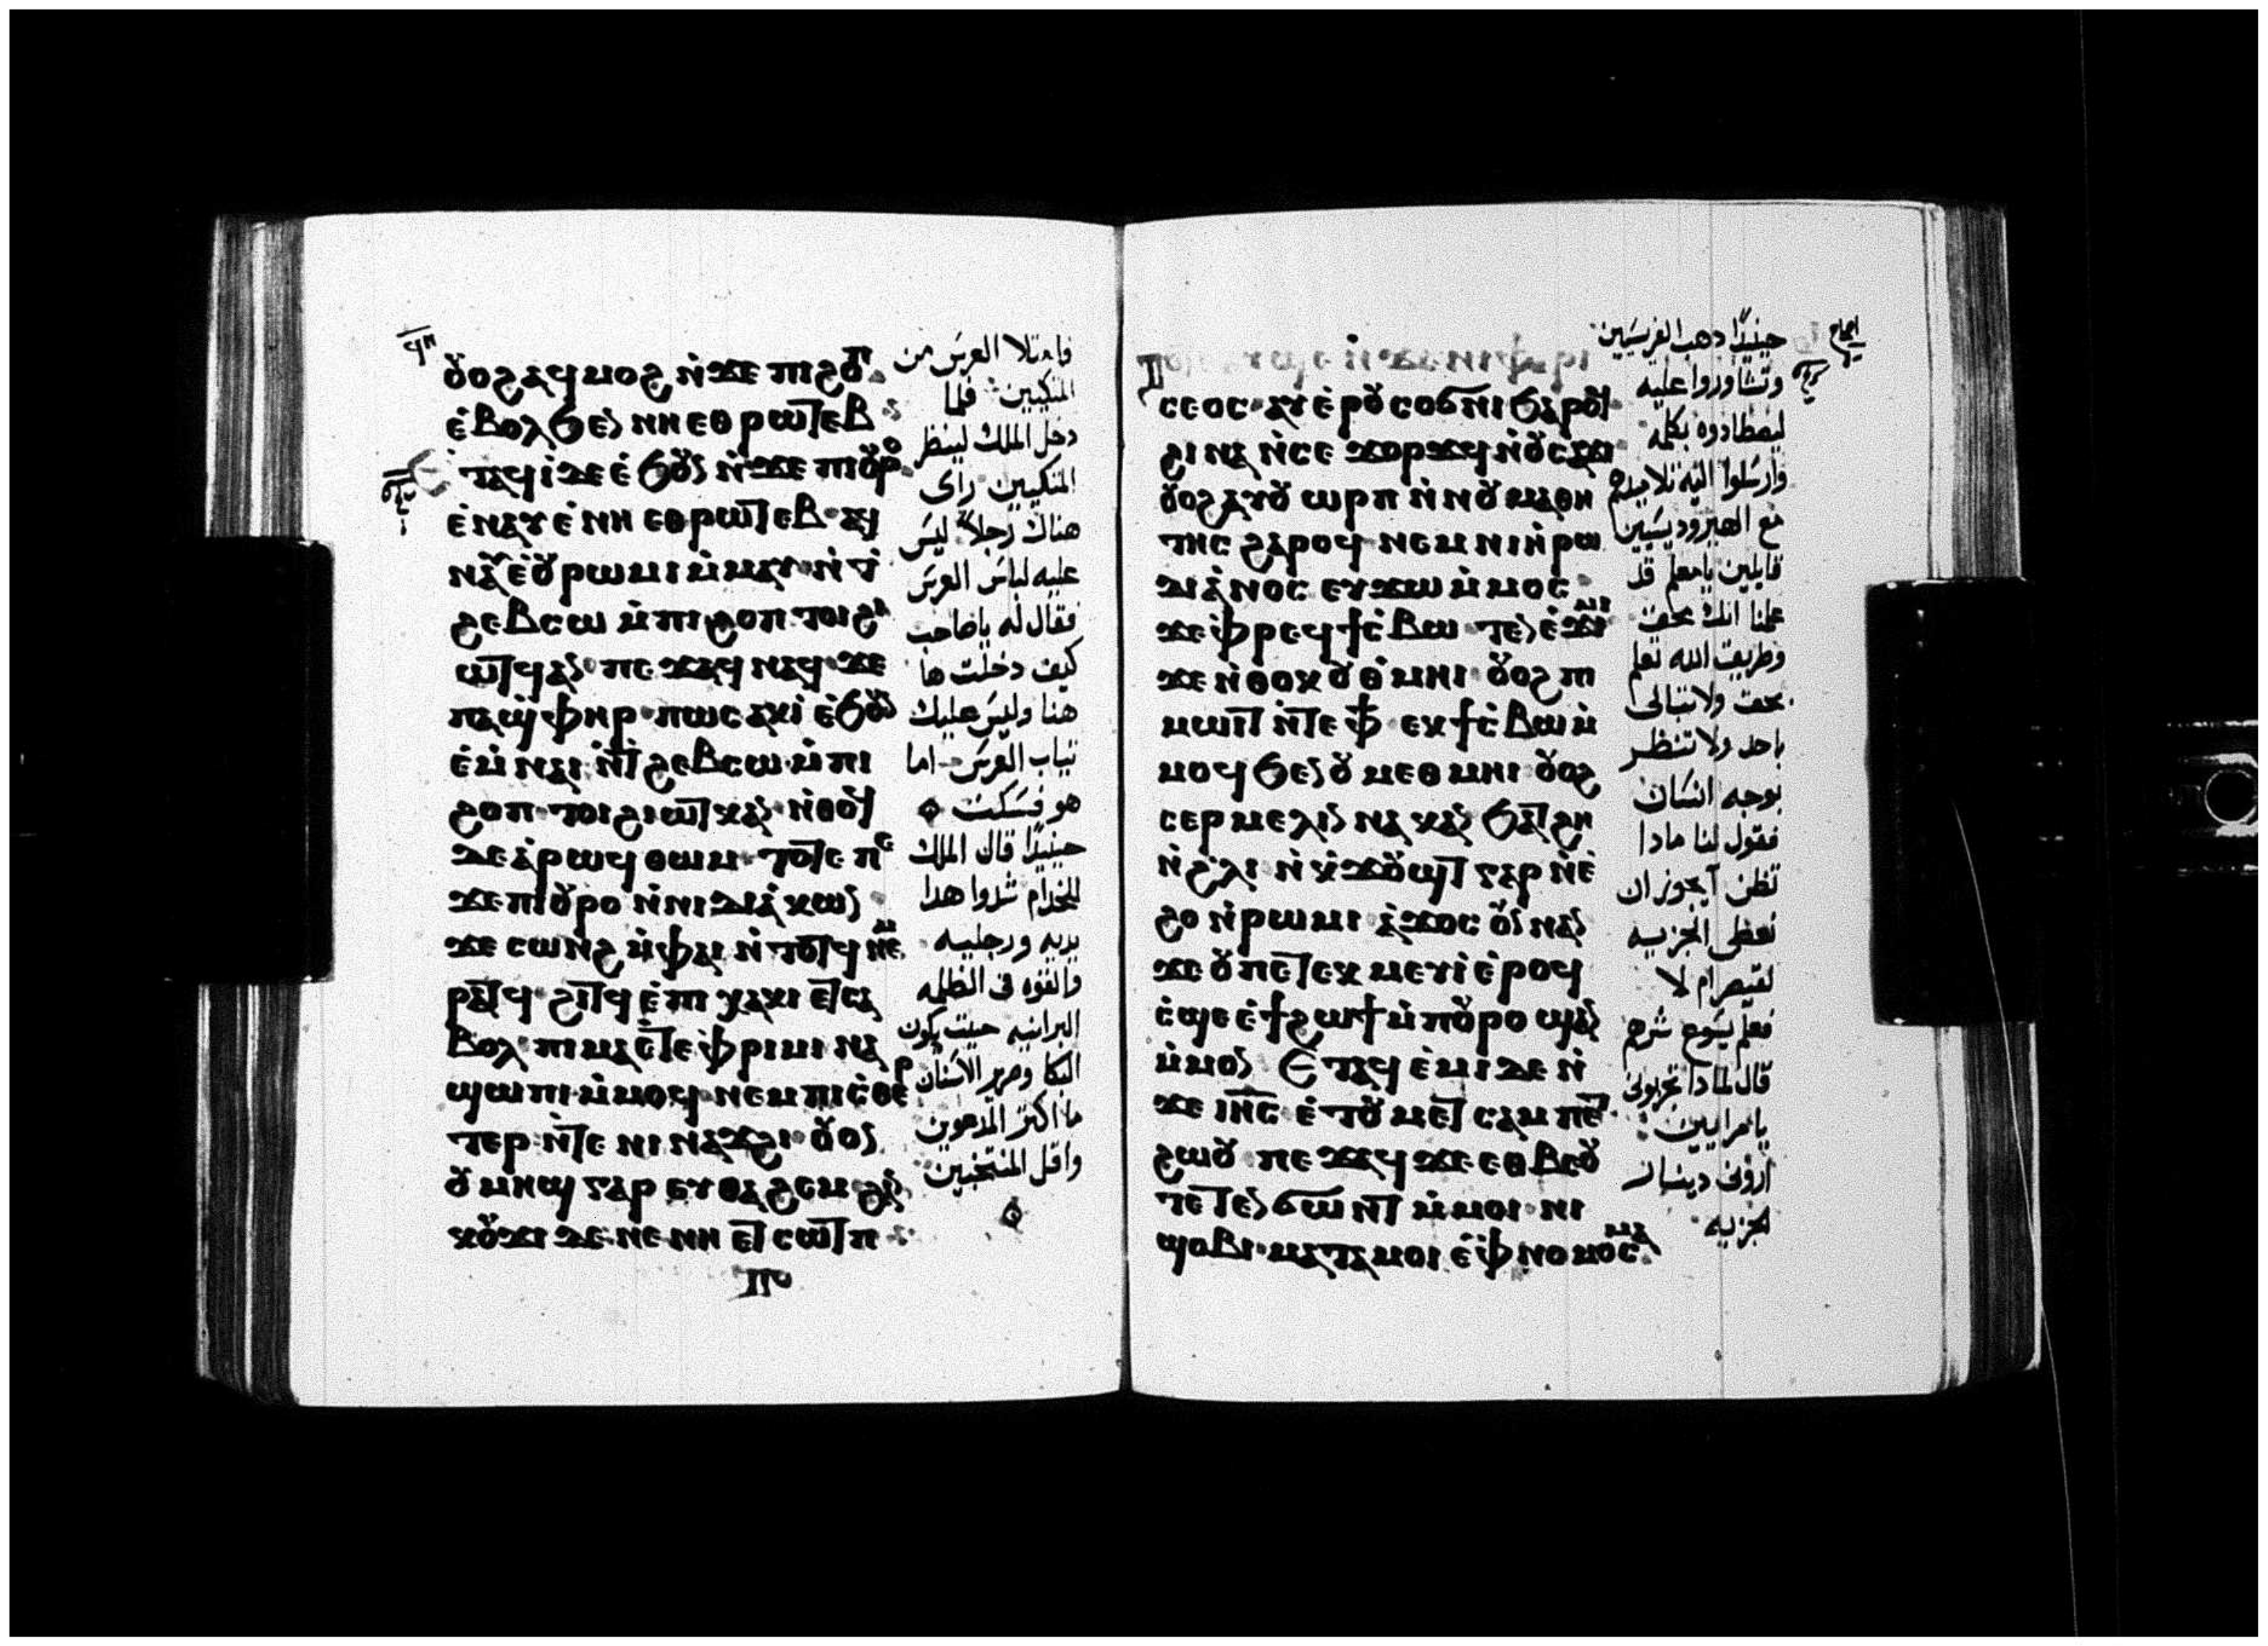 ϥⲏ
ⲟⲩⲟϩ ⲁϥⲙⲟϩ ⲛ̀ϫⲉ ⲡⲓϩⲟⲡ
ⲉ̀ⲃⲟⲗϧⲉⲛ ⲛⲏⲉⲑⲣⲱⲧⲉⲃ
ⲉⲧⲁϥⲓ̀ ⲇⲉ ⲉ̀ϧⲟⲩⲛ ⲛ̀ϫⲉ ⲡⲓⲟⲩⲣⲟ
ⲉ̀ⲛⲁⲩ ⲉ̀ⲛⲏ ⲉⲑⲣⲱⲧⲉⲃ ⲁϥ
ⲛⲁⲩ ⲉ̀ⲟⲩⲣⲱⲙⲓ ⲙ̀ⲙⲁⲩ ⲛ̀ϯ
ϩⲉⲃⲥⲱ ⲙ̀ⲡⲓϩⲟⲡ ⲧⲟⲓ ϩⲓ
ⲱⲧϥ ⲁⲛ ⲡⲉϫⲁϥ ⲛⲁϥ ϫⲉ
ⲡⲁϣ̀ⲫⲏⲣ ⲡⲱⲥ ⲁⲕⲓ̀ ⲉ̀ϧⲟⲩⲛ
ⲉ̀ⲙⲛⲁⲓ ⲛ̀ϯϩⲉⲃⲥⲱ ⲙ̀ⲡⲓ
ϩⲟⲡ ⲧⲟⲓ ϩⲓⲱⲧⲕ ⲁⲛ ⲛ̀ⲑⲟϥ
ⲇⲉ ⲁ̀ⲣⲱϥ ⲑⲱⲙ ⲧⲟⲧⲉ ⲡⲉ
ϫⲉ ⲡⲓⲟⲩⲣⲟ ⲛ̀ⲛⲓⲇⲓⲁ̀ⲕⲱⲛ
ϫⲉ ⲥⲱⲛϩ ⲙ̀ⲫⲁⲓ ⲛ̀ⲧⲟⲧϥ ⲛⲉⲙ
ⲣⲁⲧϥ ϩⲓⲧϥ ⲉ̀ⲡⲓⲭⲁⲕⲓ ⲉⲧⲥⲁ
ⲃⲟⲗ ⲡⲓⲙⲁ ⲉⲧⲉ ⲫ̀ⲣⲓⲙⲓ ⲛⲁ
ϣⲱⲡⲓ ⲙ̀ⲙⲟϥ ⲛⲉⲙ ⲡⲓⲥ̀ⲑⲉⲣ
ⲧⲉⲣ ⲛ̀ⲧⲉ ⲛⲓⲛⲁϫϩⲓ ⲟⲩⲟⲛ
ⲟⲩⲙⲏϣ ⲅⲁⲣ ⲉⲩⲑⲁϩⲉⲙ ϩⲁⲛ
ⲕⲟⲩϫⲓ ⲇⲉ ⲛⲉ ⲛⲏ ⲉⲧⲥⲱⲧⲡ
فامتلا العرس من
المتكيين فلما
دخل الملك لينظر
المتكيين راى
هناك رجلاً ليس
عليه لباس العرس
فقال له ياصاحب
كيف دخلت ها
هنا وليس عليك
تياب العرس اما
هو فسكت
حينيدًا قال الملك
للخدام شدوا هدا
يديه ورجليه
والقوه فى الظلمه
البرانيه حيت يكون
البكا وصرير الاسنان
ما اكتر المدعوين
واقل المنتخبين
ⲥⲉⲟⲥ ⲁⲩⲉⲣⲟⲩⲥⲟϭⲛⲓ ϧⲁⲣⲟϥ
ϩⲓⲛⲁ ⲛ̀ⲥⲉϫⲟⲣϫϥ ⲛ̀ⲟⲩⲥⲁϫⲓ
ⲟⲩⲟϩ ⲁⲩⲟⲩⲱⲣⲡ ⲛ̀ⲛⲟⲩⲙⲁⲑⲏ
ⲧⲏⲥ ϩⲁⲣⲟϥ ⲛⲉⲙ ⲛⲓⲏ̀ⲣⲱ
ⲇⲓⲁ̀ⲛⲟⲥ ⲉⲩϫⲱ ⲙ̀ⲙⲟⲥ
ϫⲉ ⲫ̀ⲣⲉϥϯⲥ̀ⲃⲱ ⲧⲉⲛⲉ̀ⲙⲓ
ϫⲉ ⲛ̀ⲑⲟⲕ ⲟⲩⲑ̀ⲙⲏⲓ ⲟⲩⲟϩ ⲡⲓ
ⲙⲱⲓⲧ ⲛ̀ⲧⲉ ⲫϯ ⲉⲕϯⲥ̀ⲃⲱ ⲙ̀
ⲙⲟϥ ϧⲉⲛ ⲟⲩⲙⲉⲑⲙⲏⲓ ⲟⲩⲟϩ
ⲥⲉⲣⲙⲉⲗⲓⲛ ⲛⲁⲕ ⲁⲛ ϧⲁⲧϩⲏ
ⲛ̀ϩⲗⲓ ⲛ̀ⲕ̀ϫⲟⲩϣⲧ ⲅⲁⲣ ⲛ̀ⲉ̀
ϩⲟ ⲛ̀ⲣⲱⲙⲓ ⲁ̀ϫⲟⲥ ⲟⲩⲛ ⲛⲁⲛ
ϫⲉ ⲟⲩ ⲡⲉⲧⲉⲕⲙⲉⲩⲓ̀ ⲉ̀ⲣⲟϥ
ⲥ̀ϣⲉ ⲉ̀ϯϩⲱϯ ⲙ̀ⲡⲟⲩⲣⲟ ϣⲁⲛ
ⲙ̀ⲙⲟⲛ ⲉⲧⲁϥⲉ̀ⲙⲓ ⲇⲉ ⲛ̀
ϫⲉ ⲓⲏⲥ ⲉ̀ⲧⲟⲩⲙⲉⲧⲥⲁⲙⲡⲉⲧ
ϩⲱⲟⲩ ⲡⲉϫⲁϥ ϫⲉ ⲉⲑⲃⲉⲟⲩ
ⲧⲉⲧⲉⲛϭⲱⲛⲧ ⲙ̀ⲙⲟⲓ ⲛⲓ
ϣⲟⲃⲓ ⲙⲁⲧⲁⲙⲟⲓ ⲉ̀ⲫ̀ⲛⲟⲙⲟⲥⲙⲁ
حينيدًا دهب الفريسيين
وتشاوروا عليه
ليصطادوه بكلمه
وارسلوا اليه تلاميدهم
مع الهيروديسيين
قايلين يامعلم قد
علمنا انك محق
وطريق الله تعلم
بحق ولا تبالى
باحد ولا تنظر
بوجه انسان
فقول لنا مادا
تظن آيجوز ان
نعطى الجزيه
لقيصر ام لا
فعلم يسوع شرهم
قال لمادا تجربونى
يا مرايين
اروُنى دينار
الجزيه